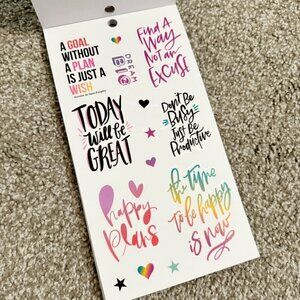 A GOAL
WITHOUT
A PLAN
IS JUST A
WISH
DREAM
BIG
Find A
Way
Not an
Excuse
TODAY
Will be
GREAT
Don't Be
Busy
Just Be
Productive
happy
plans
the time
to be happy
is now